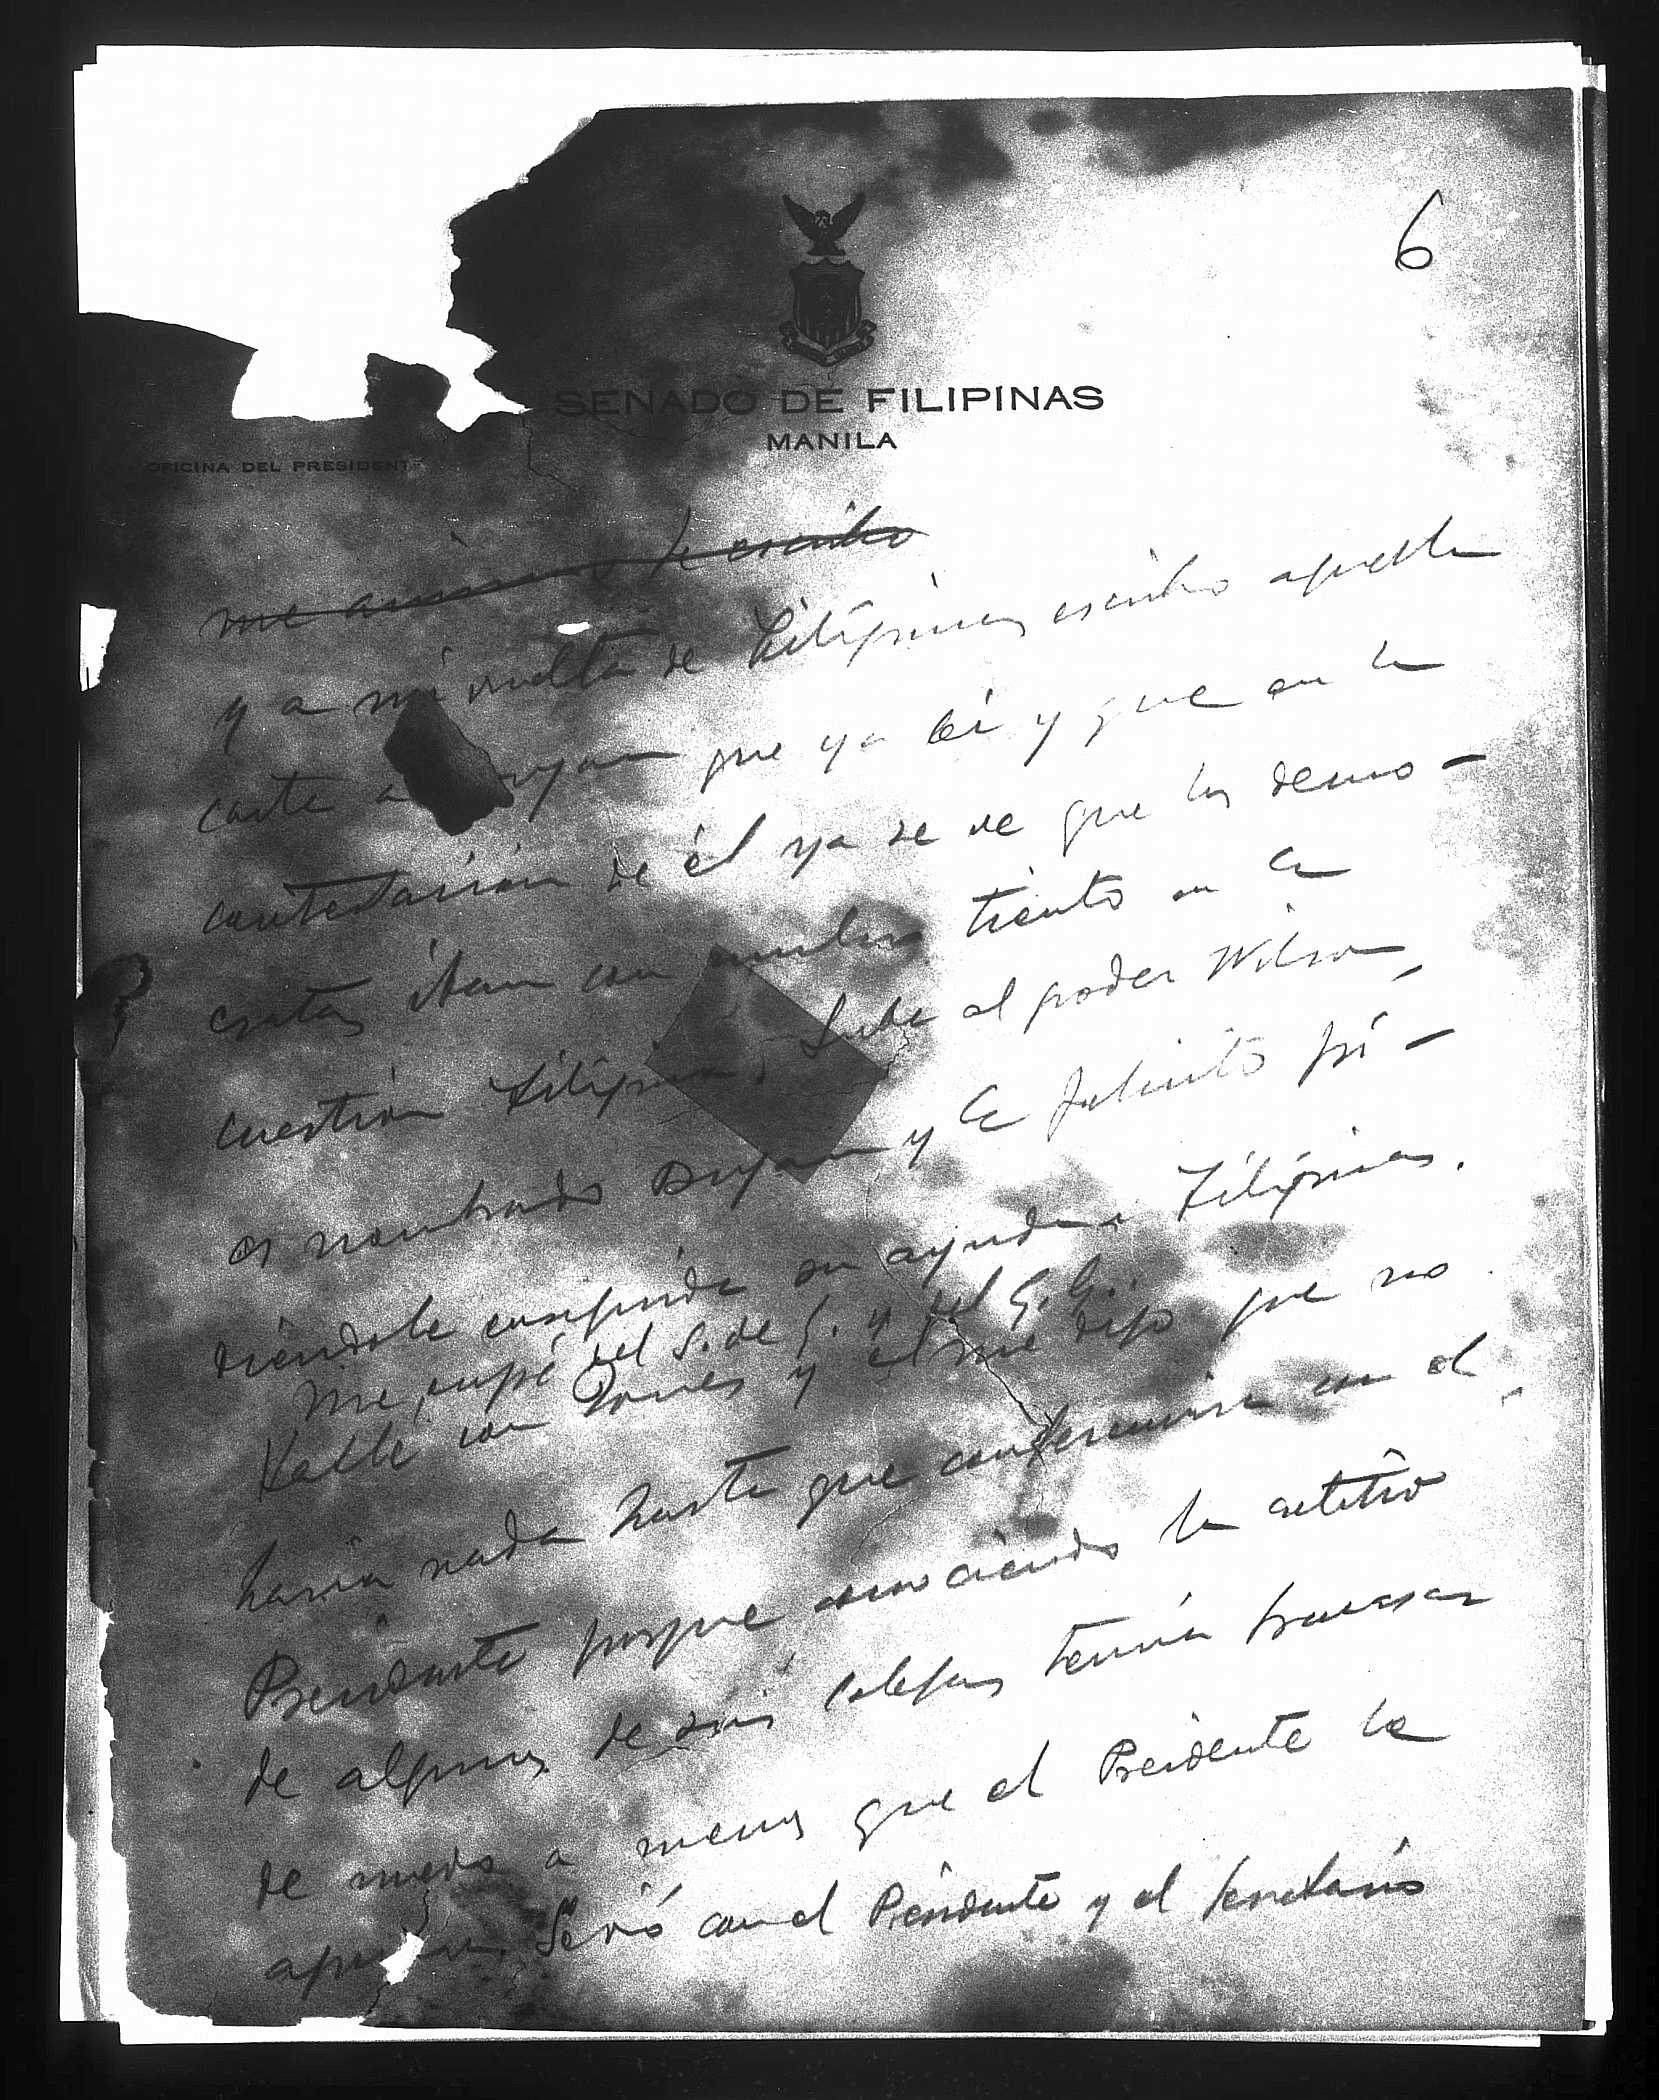 6
SENADO DE FILIPINAS
MANILA
OFICINA DEL PRESIDENT
me le escribo
y a mi vuelta de Filipinas escribo aquella
carta a ryan que ya leí y que en la
contestación de él ya se ve que los demo-
cratas iban con mucho tiento en la
cuestión Filipina. Sube al poder Wilson,
es nombrado Bryan y le felicito pi-
diéndole enseguida su ayuda a Filipinas.
Me ocupé del S. de G. y del G. G.
Hablé con Jones y él me dijo que no
haria nada hasta que conferencie con el
Presidente porque conociendo la actitud
de algunos de sus colegas temía fracasar
de nuevo a menos que el Presidente le
Se vió con el Presidente y el Secretario